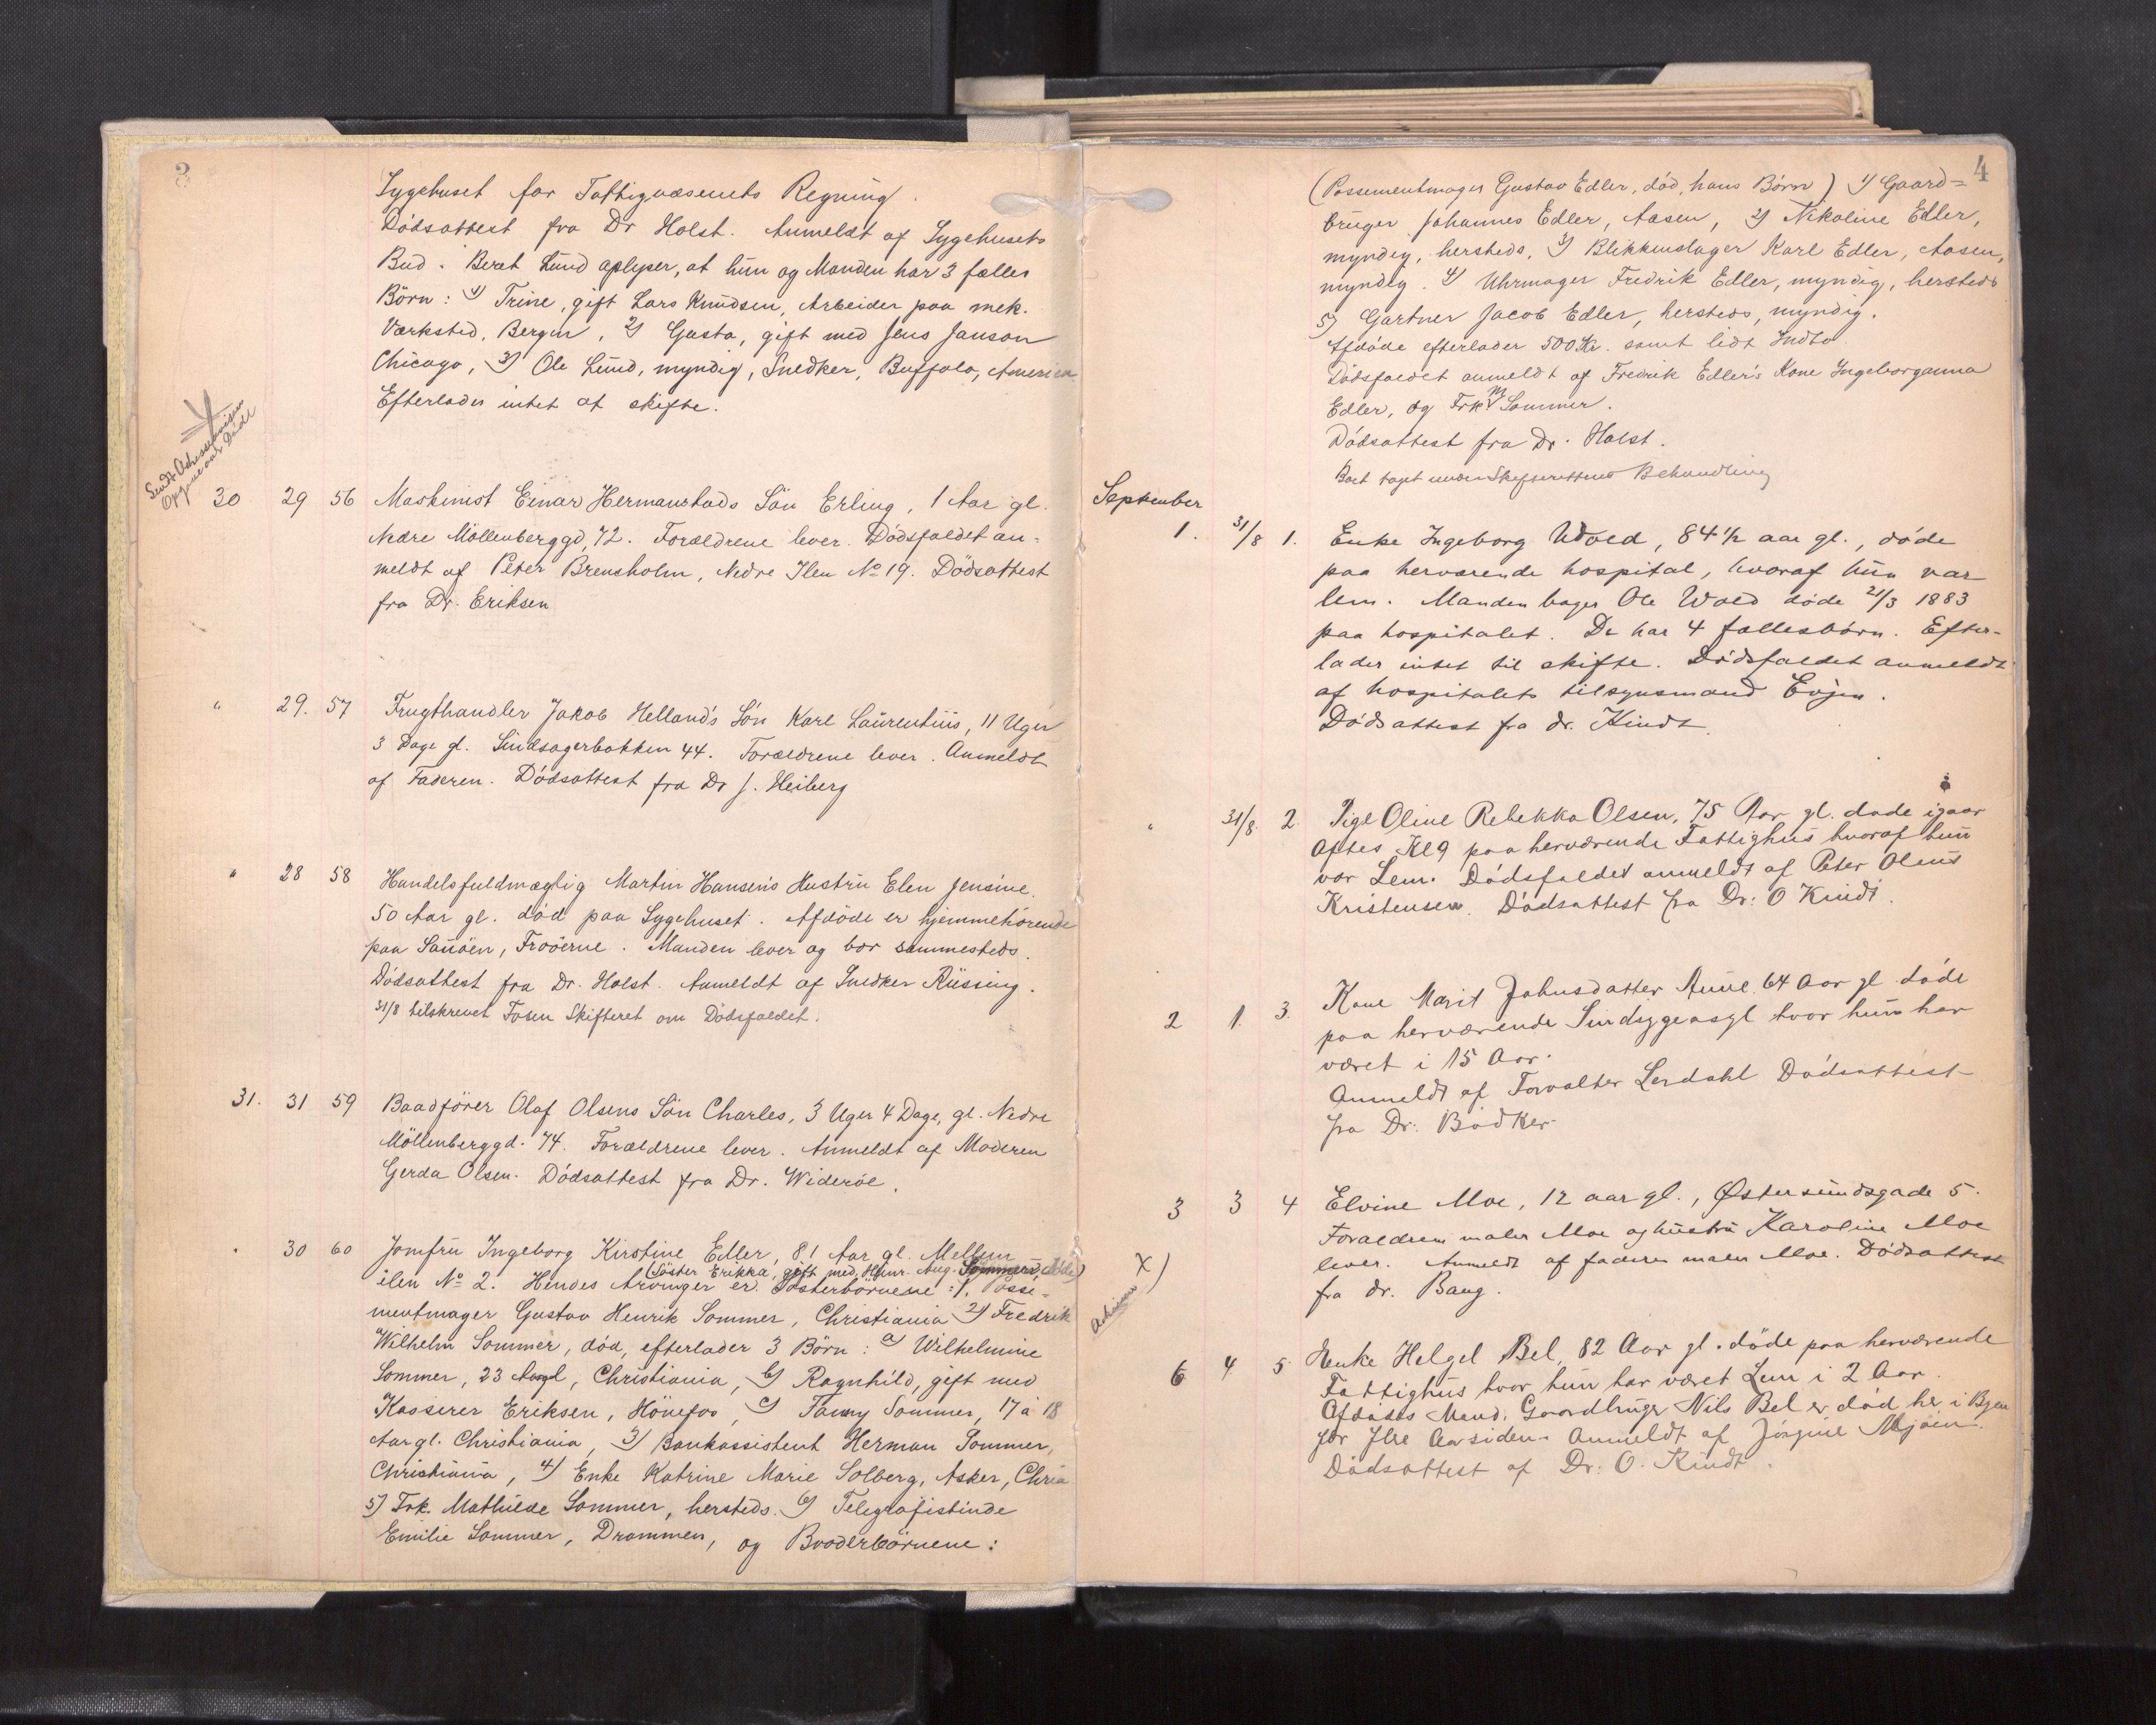 3
Sygehuset for Fattigvæsenets Regning.
Dödsattest fra Dr Holst. Anmeldt af Sygehusets
Bud. Beret Lund oplyser, at hun og Manden har 3 fælles
Börn: 1) Trine, gift Lars Knudsen, Arbeider paa mek.
Værksted, Bergen, 2) Gusta, gift med Jens Janson
Chicago, 3) Ole Lund, myndig, Snedker, Buffalo, America
Efterlader intet at skifte.
Sendt Adresseavisen
30 29 56 Maskinist Einar Hermanstads Sön Erling, 1 Aar gl.
Nedre Möllenberggd, 72. Forældrene lever. Dödsfaldet an-
meldt af Peter Brensholm, Nedre Ilen No 19. Dödsattest
fra Dr. Eriksen
" 29. 57 Frugthandler Jakob Helland's Sön Karl Laurentius, 11 Uger
3 Dage gl. Sindsagerbakken 44. Forældrene lever. Anmeldt
af Faderen. Dödsattest fra Dr J. Heiberg
" 28 58 Handelsfuldmægtig Martin Hansen's Hustru Elen Jensine,
50 Aar gl. död paa Sygehuset. Afdöde er hjemmehörende
paa Sauöen, Froöerne. Manden lever og bor sammesteds.
Dödsattest fra Dr. Holst. Anmeldt af Snedker Rüssing.
31/8 tilskrevet Fosen Skifteret om Dödsfaldet.
31. 31 59 Baadförer Olaf Olsens Sön Charles, 3 Uger 4 Dage, gl. Nedre
Möllenberggd. 74. Forældrene lever. Anmeldt af Moderen
Gerda Olsen. Dödsattest fra Dr. Wideröe.
" 30 60 Jomfru Ingeborg Kirstine Edler, 81 Aar gl. Mellem
(Söster Erikka, gift med Henr. Aug. Sommer, döde)
ilen No 2. Hendes Arvinger er: Sösterbörnene: 1. Posse-
mentmager Gustav Henrik Sommer, Christiania 2) Fredrik
Wilhelm Sommer, död, efterlader 3 Börn: a) Wilhelmine
Sommer, 23 Aargl, Christiania, b) Ragnhild, gift med
Kasserer Eriksen, Hönefos, c) Fanny Sommer, 17 à 18
Aar gl. Christiania, 3) Bankassistent Herman Sommer,
Christiania, 4) Enke Katrine Marie Solberg, Asker, Chria
5) Frk. Mathilde Sommer, hersteds. 6) Telegrafistinde
Emilie Sommer, Drammen, og Broderbörnene:
4
(Possementmager Gustav Edler, död, hans Börn) 1) Gaard=
bruger Johannes Edler, Aasen, 2) Nikoline Edler,
myndig, hersteds, 3) Blikkenslager Karl Edler, Aasen,
myndig. 4) Uhrmager Fredrik Edler, myndig, hersteds
5) Gartner Jacob Edler, hersteds, myndig.
Afdöde efterlader 500 Kr. samt lidt Indbo
Dödsfaldet anmeldt af Fredrik Edler's Kone Ingeborganna
Edler, og Frk M Sommer.
Dödsattest fra Dr. Holst.
Boet taget under Skifterettens Behandling
September
1. 31/8 1. Enke Ingeborg Wold, 84 1/2 aar gl., døde
paa herværende hospital, hvoraf hun var
lem. Manden bager Ole Wold døde 21/3 1883
paa hospitalet. De har 4 fællesbørn. Efter-
lader intet til skifte. Dødsfaldet anmeldt
af hospitalets tilsynsmand Evjen.
Dødsattest fra dr. Kindt.
" 31/8. 2. Pige Oline Rebekka Olsen, 75 Aar gl. døde igaar
Aftes Kl 9 paa herværende Fattighus hvoraf hun
var Lem. Dødsfaldet anmeldt af Peter Olaus
Kristensen. Dødsattest fra Dr: O Kindt.
2 1. 3. Kone Marit Johnsdatter Aune 64 Aar gl døde
paa herværende Sindsygeasyl hvor hun har
været i 15 Aar.
Anmeldt af Forvalter Lerdahl Dødsattest
fra Dr: Bødker.
3 3 4 Elvine Moe, 12 aar gl., Østersundsgade 5.
Forældrene maler Moe og hustru Karoline Moe
lever. Anmeldt af faderen maler Moe. Dødsattest
fra dr. Bang.
X)
6 4 5. Enke Helgel Bel, 82 Aar gl. døde paa herværende
Fattighus hvor hun har været Lem i 2 Aar.
Afdødes Mand, Gaardbruger Nils Bel er død her i Byen
for flre Aar siden. Anmeldt af Jørgine Mjøen.
Dødsattest af Dr: O. Kindt.